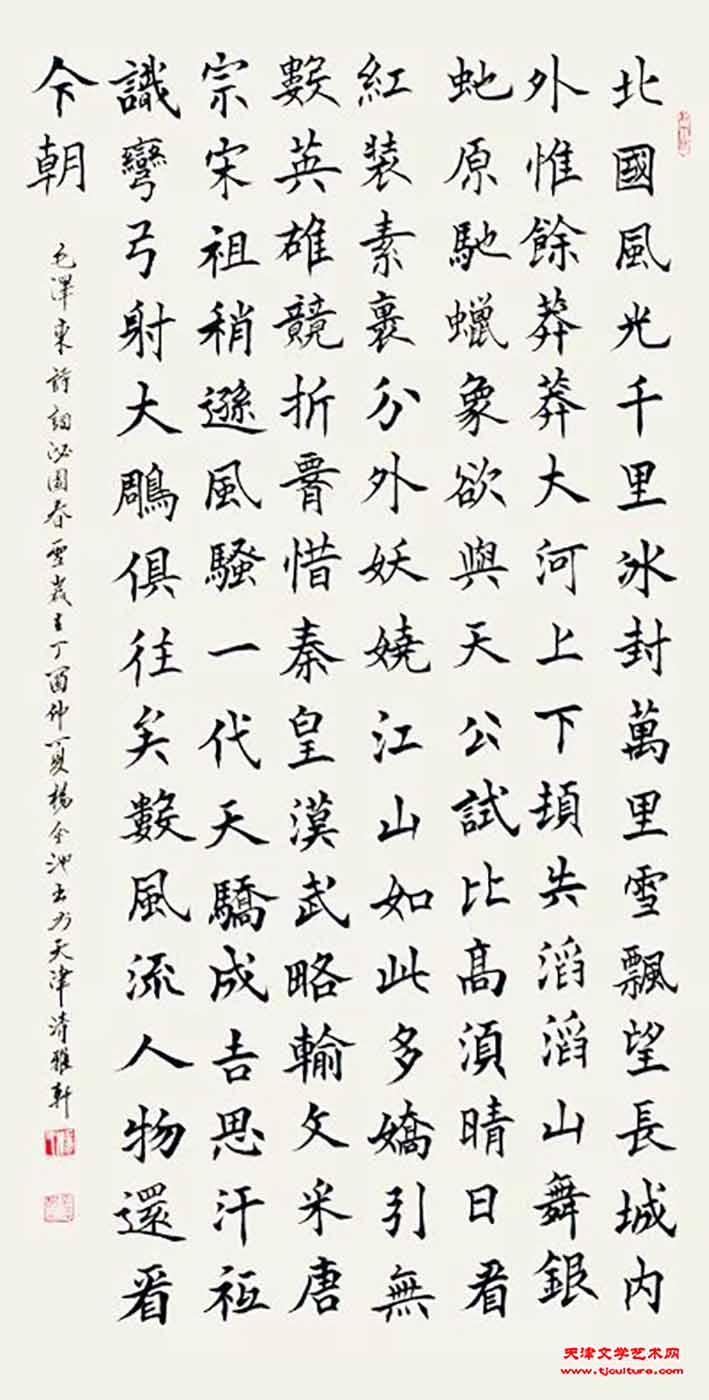 北國風光千里冰封萬里雪飄望長城内
外惟餘莽莽大河上下頓失滔滔山舞銀
虵原馳蠟象欲與天公試比高須晴日看
紅裝素裹分外妖嬈江山如此多嬌引無
數英雄競折腰惜秦皇漢武略輸文采唐
宗宋祖稍遜風騷一代天驕成吉思汗祗
識彎弓射大鵰俱往矣數風流人物還看
今朝
毛澤東詩詞沁園春雪歲在丁酉仲夏楊金池書於天津清雅軒
天津文学艺术网
www.tjculture.com